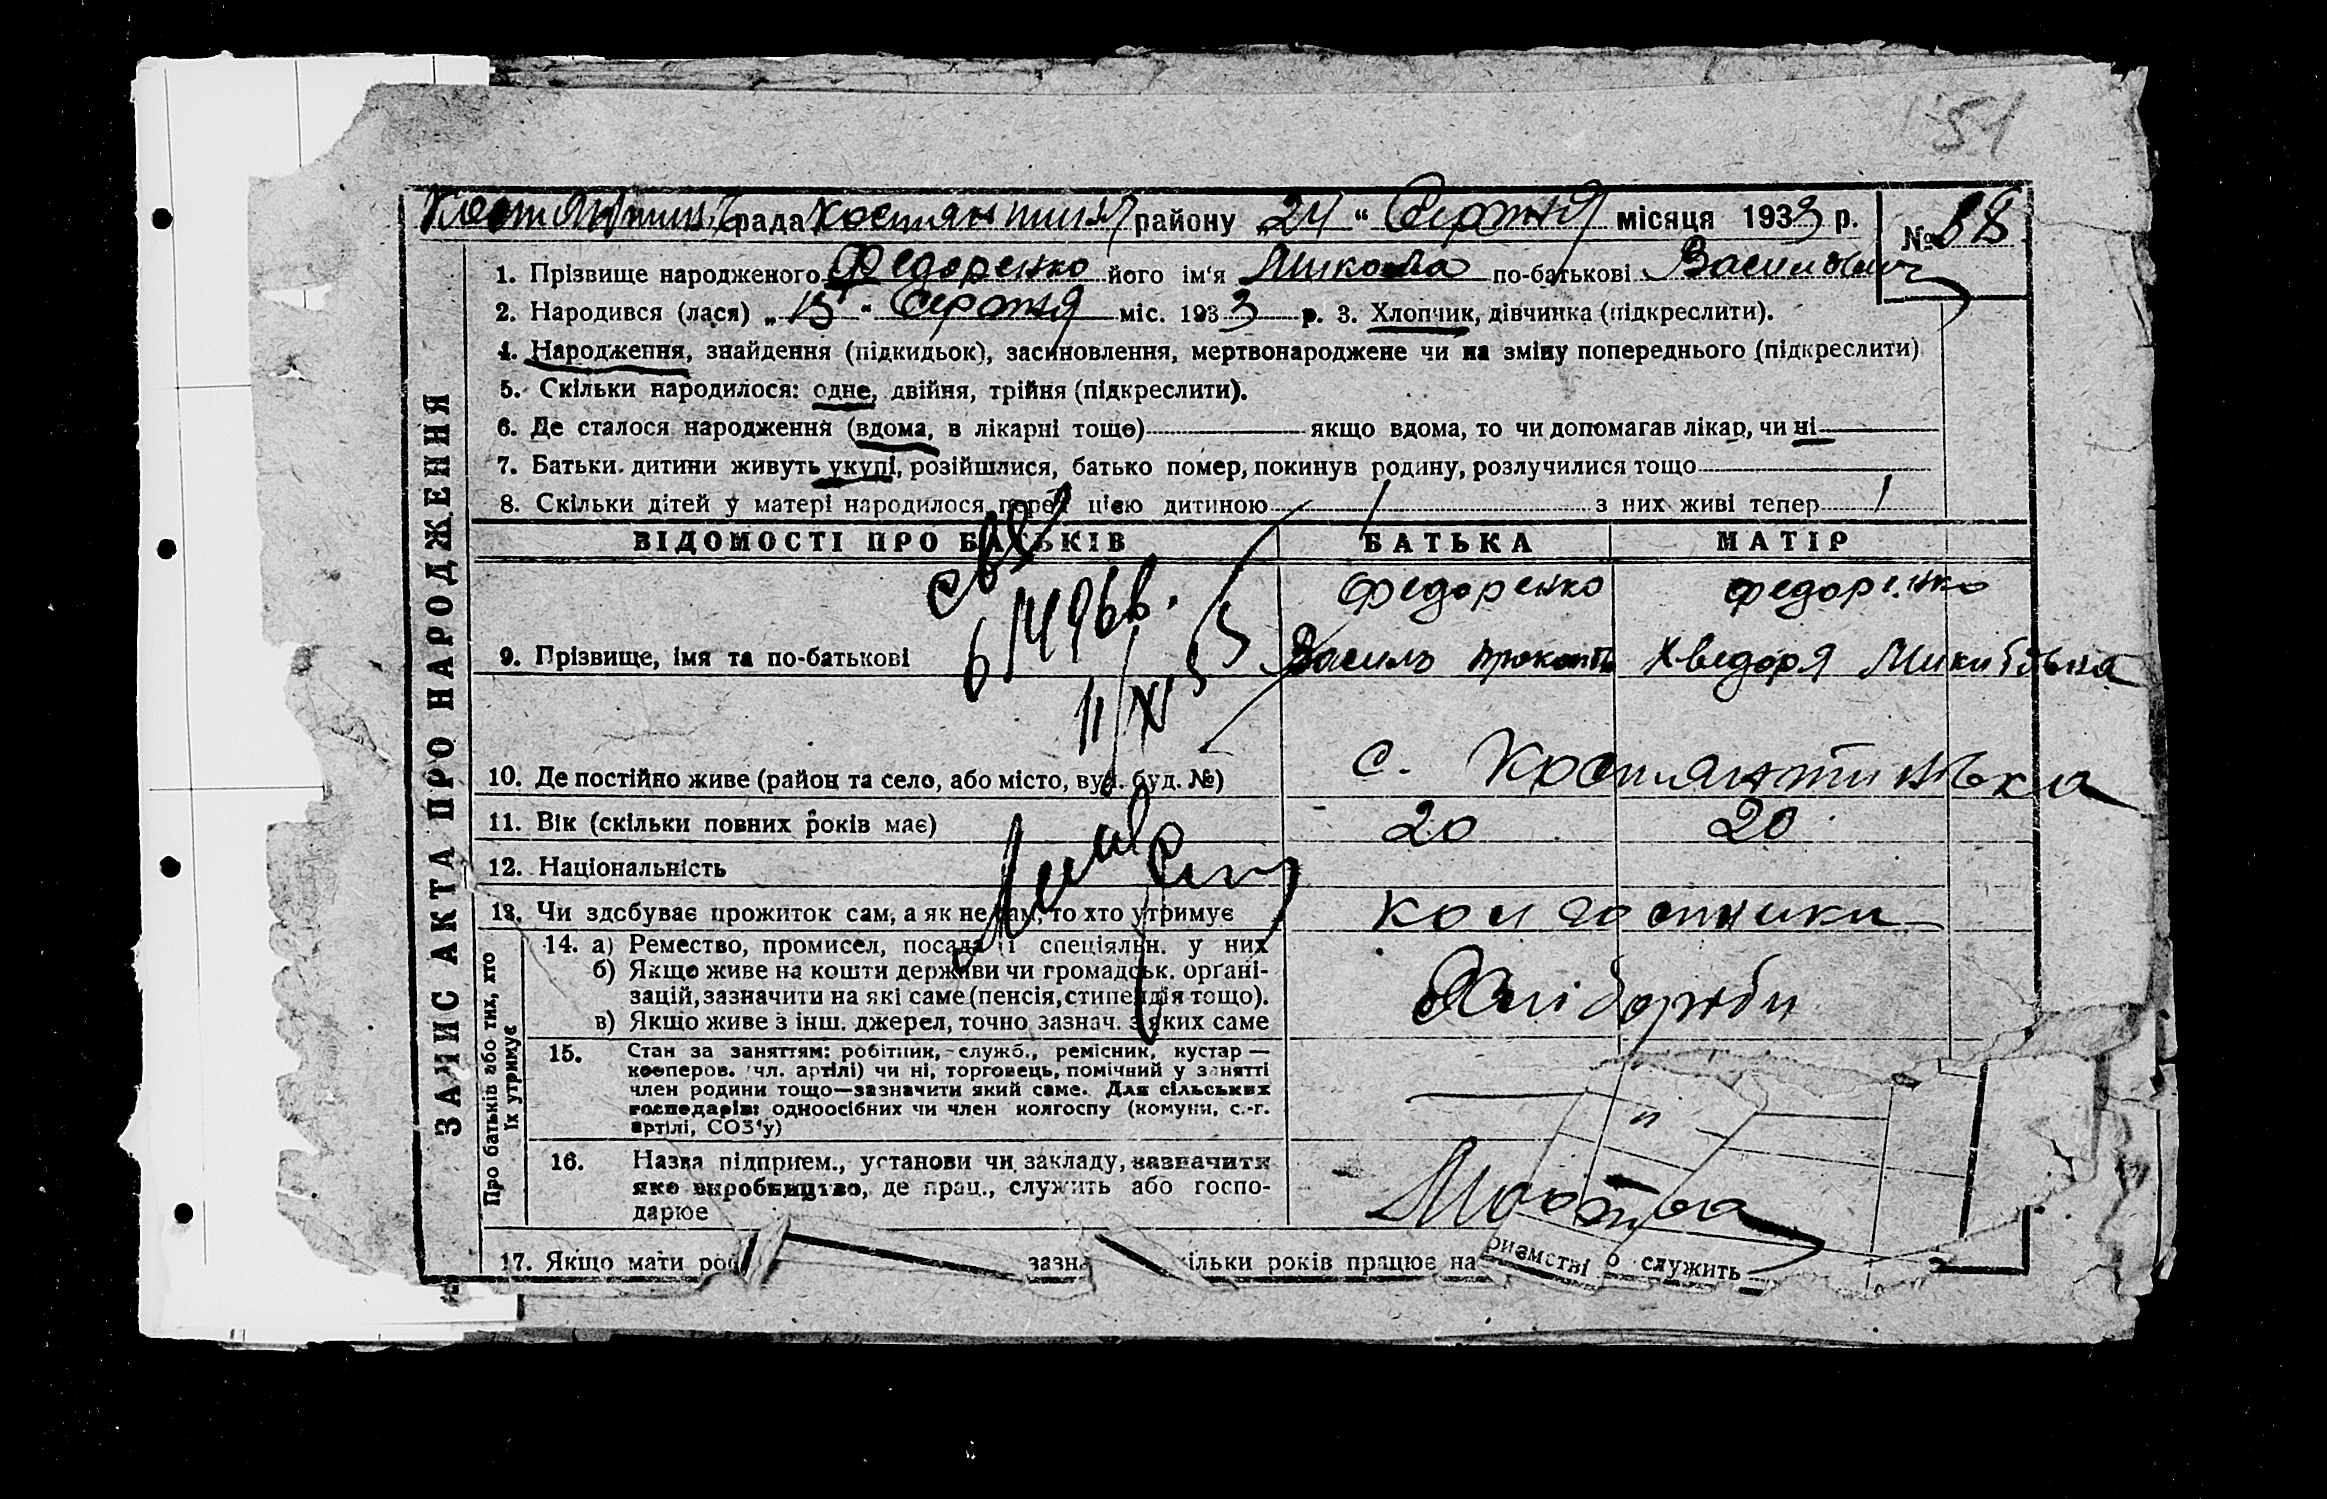 51
Костянтинів рада Костянтинів району 24 " Серпня місяця 1933 р. № 88
1. Прізвище народженого Федоренко його ім'я Микола по-батькові Васильович
2. Народився (лася) „ 15 " Серпня міс. 1933 р. 3. Хлопчик, дівчинка (підкреслити).
4. Народження, знайдення (підкидьок), засиновлення, мертвонароджене чи на зміну попереднього (підкреслити)
5. Скільки народилося: одне, двійня, трійня (підкреслити).
6. Де сталося народження (вдома, в лікарні тощо) якщо вдома, то чи допомагав лікар, чи ні
7. Батьки дитини живуть укупі, розійшлися, батько помер, покинув родину, розлучилися тощо
8. Скільки дітей у матері народилося перед цією дитиною 1 з них живі тепер 1
ВІДОМОСТІ ПРО БАТЬКІВ БАТЬКА МАТІР
Федоренко Федоренко
9. Прізвище, імя та по-батькові Василь Прокоп Хведоря Микитовна
10. Де постійно живе (район та село, або місто, вул. буд. №) с. Костянтинівка
11. Вік (скільки повних років має) 20 20
12. Національність
13. Чи здобуває прожиток сам, а як не сам, то хто утримує колгоспники
14. а) Ремество, промисел, посада і спеціяльн. у них
б) Якщо живе на кошти держави чи громадськ. органі-
зацій, зазначити на які саме (пенсія, стипендія тощо). Хліборби
в) Якщо живе з інш. джерел, точно зазнач. з яких саме
15. Стан за заняттям: робітник, служб., ремісник, кустар —
кооперов. чл. артілі) чи ні, торговець, помічний у занятті
член родини тощо—зазначити який саме. Для сільських
господарів: одноосібних чи член колгоспу (комуни, с.-г.
артілі, СОЗ'у)
16. Назва підприєм., установи чи закладу, зазначити
яке виробництво, де прац., служить або госпо-
дарює
17. Якщо мати роб зазна ільки років працює на риємстві о служить
ЗАПИС АКТА ПРО НАРОДЖЕННЯ
Про батьків або тих, хто
їх утримує